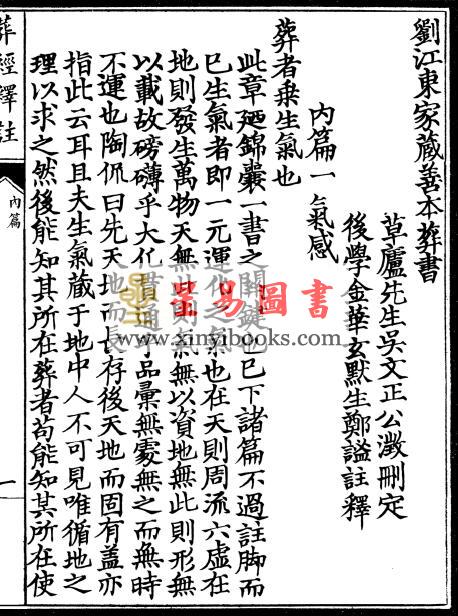 劉江東家蔵善本葬書
草廬先生吳文正公澂刪定
後學金華玄默生鄭謐註釋
內篇一 氣感
葬者乗生氣也
此章廼錦囊一書之関鍵也已下諸篇不過註脚而
已生氣者即一元運化之氣也在天則周流六虛在
地則發生萬物天無此則氣無以資地無此則形無
以載故磅礴乎大化貫通乎品彙無處無之而無時
不運也陶侃曰先天地而長存後天地而固有盖亦
指此云耳且夫生氣蔵于地中人不可見唯循地之
理以求之然後能知其所在葬者苟能知其所在使
葬經釋註
內篇
一
星易圖書
www.xinyibooks.com